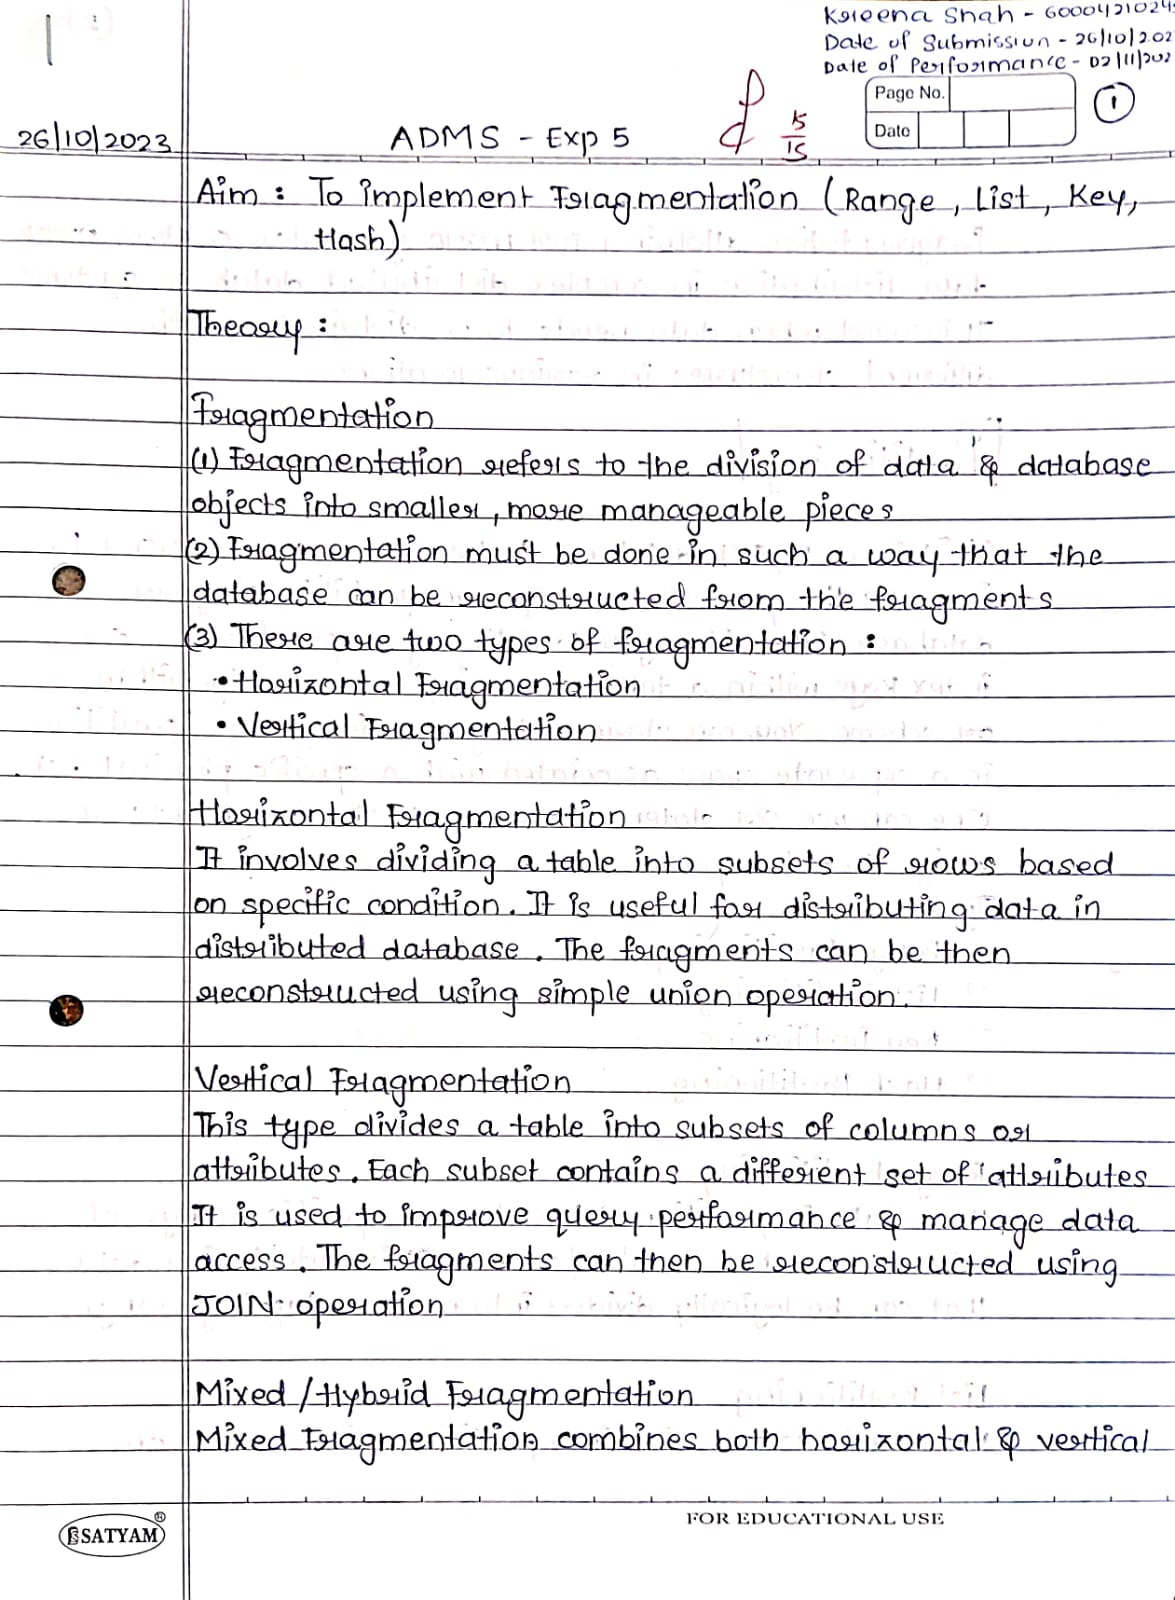 Kreena Shah - 6000421024
Date of Submission - 26/10/202
Date of Performance - 02/11/202
Page No.
1
Date
15
15
26/10/2023
ADMS - Exp 5
Aim : To implement Fragmentation (Range, List, Key,
Hash)
Theory :
Fragmentation
(1) Fragmentation refers to the division of data & database
objects into smaller, more manageable pieces
(2) Fragmentation must be done in such a way that the
database can be reconstructed from the fragments
(3) There are two types of fragmentation :
• Horizontal Fragmentation
• Vertical Fragmentation
Horizontal Fragmentation
It involves dividing a table into subsets of rows based
on specific condition. It is useful for distributing data in
distributed database. The fragments can be then
reconstructed using simple union operation.
Vertical Fragmentation
This type divides a table into subsets of columns or
attributes. Each subset contains a different set of attributes
It is used to improve query performance & manage data
access. The fragments can then be reconstructed using
JOIN operation
Mixed / Hybrid Fragmentation
Mixed Fragmentation combines both horizontal & vertical
SATYAM ®
FOR EDUCATIONAL USE